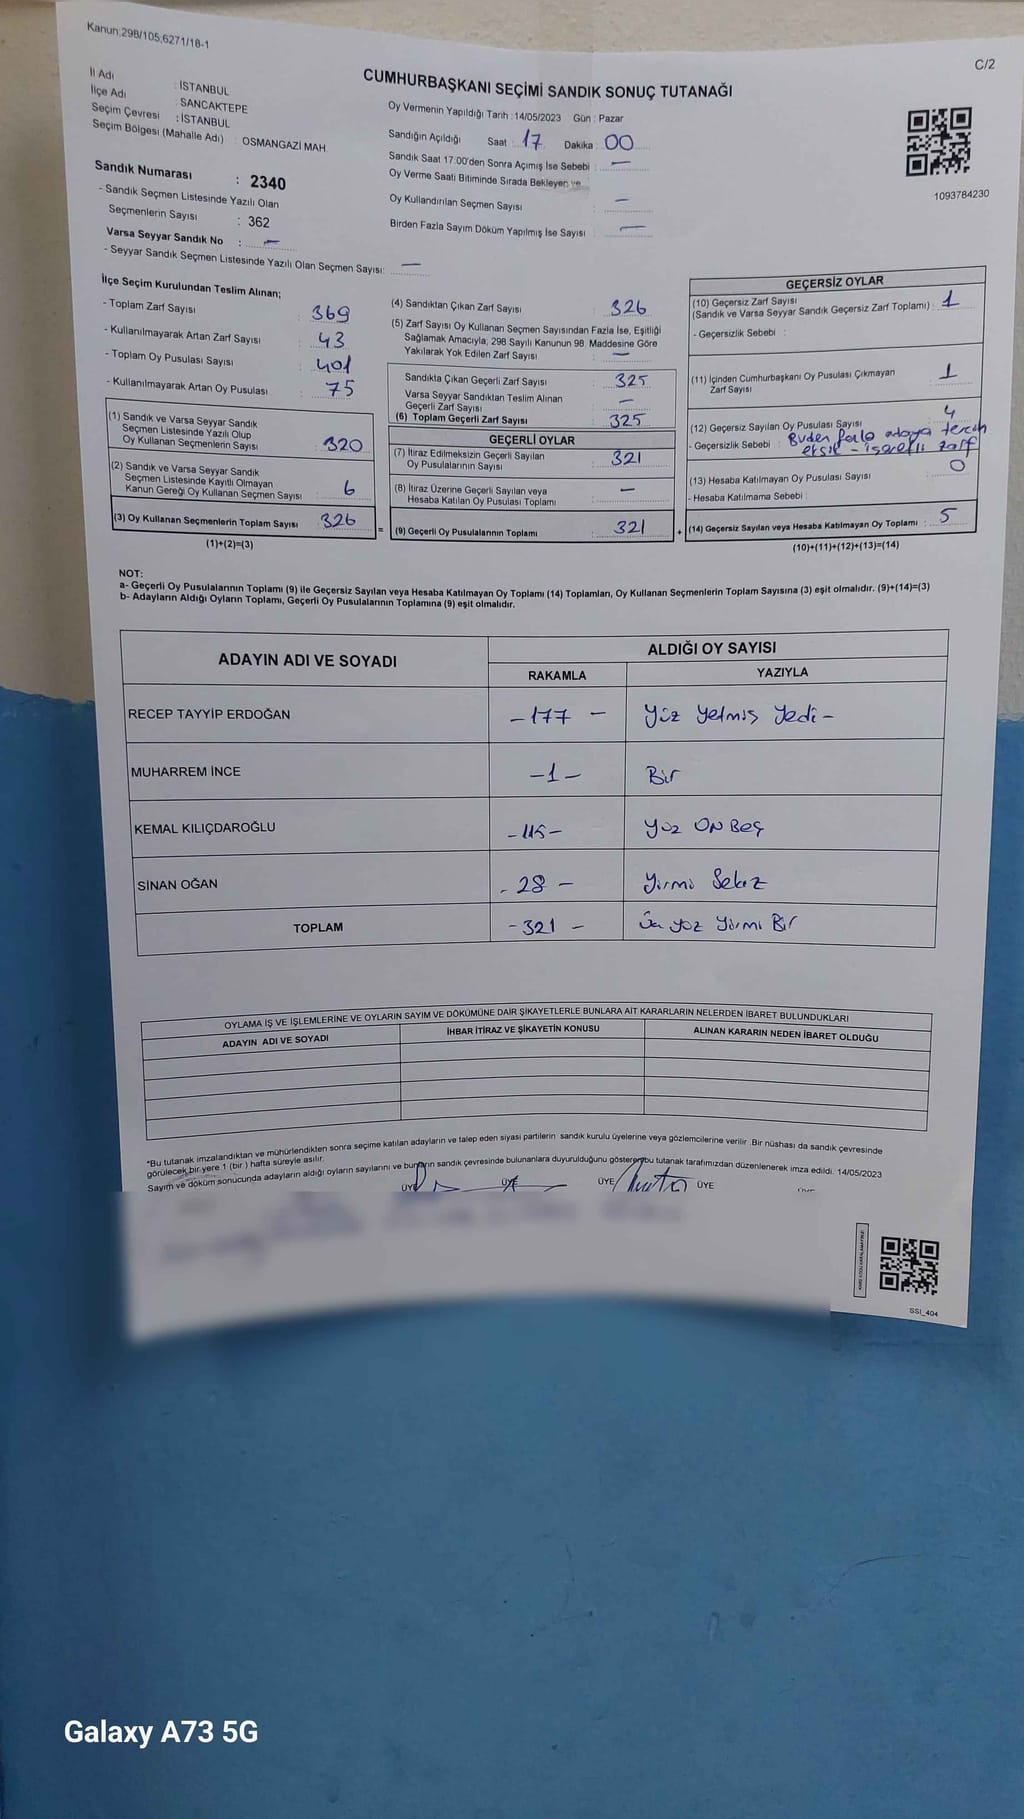 Kanun;298/105,6271/18-1
C/2
CUMHURBAŞKANI SEÇİMİ SANDIK SONUÇ TUTANAĞI
İl Adı : İSTANBUL
İlçe Adı : SANCAKTEPE
Seçim Çevresi : İSTANBUL
Seçim Bölgesi (Mahalle Adı) : OSMANGAZİ MAH.
Sandık Numarası : 2340
- Sandık Seçmen Listesinde Yazılı Olan
Seçmenlerin Sayısı : 362
Varsa Seyyar Sandık No : —
- Seyyar Sandık Seçmen Listesinde Yazılı Olan Seçmen Sayısı: —
Oy Vermenin Yapıldığı Tarih : 14/05/2023 Gün : Pazar
Sandığın Açıldığı Saat : 17 Dakika : 00
Sandık Saat 17:00'den Sonra Açılmış İse Sebebi : —
Oy Verme Saati Bitiminde Sırada Bekleyen ve
Oy Kullandırılan Seçmen Sayısı : —
Birden Fazla Sayım Döküm Yapılmış İse Sayısı : —
1093784230
İlçe Seçim Kurulundan Teslim Alınan;
- Toplam Zarf Sayısı : 369
- Kullanılmayarak Artan Zarf Sayısı : 43
- Toplam Oy Pusulası Sayısı : 401
- Kullanılmayarak Artan Oy Pusulası : 75
(1) Sandık ve Varsa Seyyar Sandık
Seçmen Listesinde Yazılı Olup
Oy Kullanan Seçmenlerin Sayısı : 320
(2) Sandık ve Varsa Seyyar Sandık
Seçmen Listesinde Kayıtlı Olmayan
Kanun Gereği Oy Kullanan Seçmen Sayısı : 6
(3) Oy Kullanan Seçmenlerin Toplam Sayısı : 326
(1)+(2)=(3)
(4) Sandıktan Çıkan Zarf Sayısı : 326
(5) Zarf Sayısı Oy Kullanan Seçmen Sayısından Fazla İse, Eşitliği
Sağlamak Amacıyla; 298 Sayılı Kanunun 98. Maddesine Göre
Yakılarak Yok Edilen Zarf Sayısı : —
Sandıkta Çıkan Geçerli Zarf Sayısı : 325
Varsa Seyyar Sandıktan Teslim Alınan
Geçerli Zarf Sayısı : —
(6) Toplam Geçerli Zarf Sayısı : 325
GEÇERLİ OYLAR
(7) İtiraz Edilmeksizin Geçerli Sayılan
Oy Pusulalarının Sayısı : 321
(8) İtiraz Üzerine Geçerli Sayılan veya
Hesaba Katılan Oy Pusulası Toplamı : —
= (9) Geçerli Oy Pusulalarının Toplamı : 321
GEÇERSİZ OYLAR
(10) Geçersiz Zarf Sayısı
(Sandık ve Varsa Seyyar Sandık Geçersiz Zarf Toplamı) : 1
- Geçersizlik Sebebi :
(11) İçinden Cumhurbaşkanı Oy Pusulası Çıkmayan
Zarf Sayısı : 1
(12) Geçersiz Sayılan Oy Pusulası Sayısı : 4
- Geçersizlik Sebebi : Birden fazla adaya tercih
eksik - işaretli zarf
(13) Hesaba Katılmayan Oy Pusulası Sayısı : 0
- Hesaba Katılmama Sebebi :
+ (14) Geçersiz Sayılan veya Hesaba Katılmayan Oy Toplamı : 5
(10)+(11)+(12)+(13)=(14)
NOT:
a- Geçerli Oy Pusulalarının Toplamı (9) ile Geçersiz Sayılan veya Hesaba Katılmayan Oy Toplamı (14) Toplamları, Oy Kullanan Seçmenlerin Toplam Sayısına (3) eşit olmalıdır. (9)+(14)=(3)
b- Adayların Aldığı Oyların Toplamı, Geçerli Oy Pusulalarının Toplamına (9) eşit olmalıdır.
ADAYIN ADI VE SOYADI ALDIĞI OY SAYISI
RAKAMLA YAZIYLA
RECEP TAYYİP ERDOĞAN - 177 - Yüz Yetmiş Yedi -
MUHARREM İNCE - 1 - Bir
KEMAL KILIÇDAROĞLU - 115 - Yüz On Beş
SİNAN OĞAN - 28 - Yirmi Sekiz
TOPLAM - 321 - Üç yüz Yirmi Bir
OYLAMA İŞ VE İŞLEMLERİNE VE OYLARIN SAYIM VE DÖKÜMÜNE DAİR ŞİKAYETLERLE BUNLARA AİT KARARLARIN NELERDEN İBARET BULUNDUKLARI
ADAYIN ADI VE SOYADI İHBAR İTİRAZ VE ŞİKAYETİN KONUSU ALINAN KARARIN NEDEN İBARET OLDUĞU
*Bu tutanak imzalandıktan ve mühürlendikten sonra seçime katılan adayların ve talep eden siyasi partilerin sandık kurulu üyelerine veya gözlemcilerine verilir .Bir nüshası da sandık çevresinde
görülecek bir yere 1 (bir ) hafta süreyle asılır.
Sayım ve döküm sonucunda adayların aldığı oyların sayılarını ve bunların sandık çevresinde bulunanlara duyurulduğunu gösteren bu tutanak tarafımızdan düzenlenerek imza edildi. 14/05/2023
ÜYE ÜYE ÜYE ÜYE
SSI_404
Galaxy A73 5G